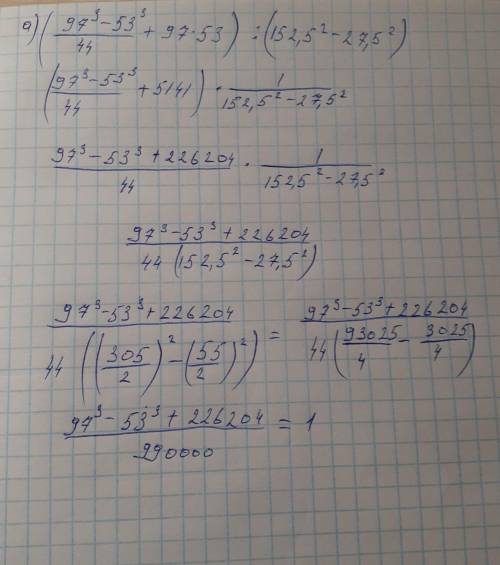 a) ( (97³ − 53³)/44 + 97·53 ) : (152,5² − 27,5²)
( (97³ − 53³)/44 + 5141 ) · 1/(152,5² − 27,5²)
(97³ − 53³ + 226204)/44 · 1/(152,5² − 27,5²)
(97³ − 53³ + 226204)/(44 (152,5² − 27,5²))
(97³ − 53³ + 226204)/(44 ((305/2)² − (55/2)²)) = (97³ − 53³ + 226204)/(44 (93025/4 − 3025/4))
(97³ − 53³ + 226204)/990000 = 1